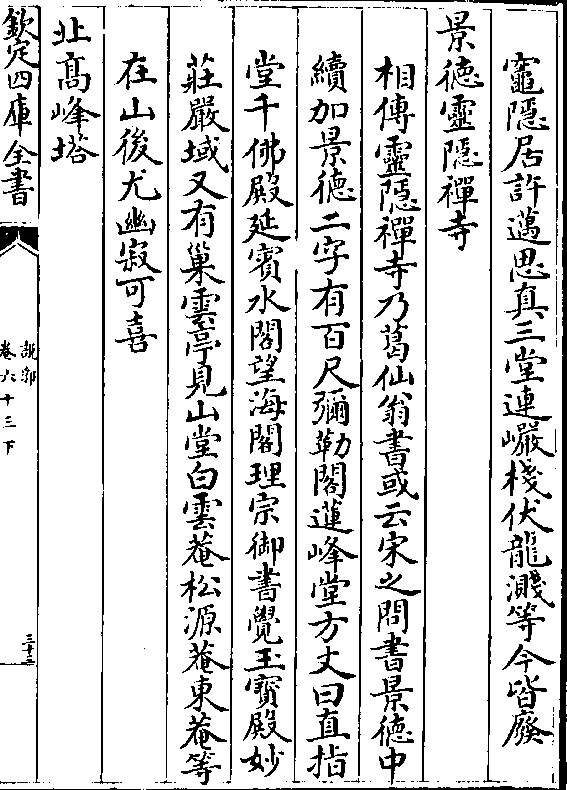 竈隠居許邁思真三堂連巖棧伏龍濺等今皆廢
景徳靈隠禪寺
相傳靈隠禪寺乃葛仙翁書或云宋之問書景徳中
續加景徳二字有百尺彌勒閣蓮峰堂方丈曰直指
堂千佛殿延賓水閣望海閣理宗御書覺王寳殿妙
莊嚴域又有巢雲亭見山堂白雲菴松源菴東菴等
在山後尤幽寂可喜
北髙峰塔
欽定四庫全書
說郛
卷六十三下
三十二